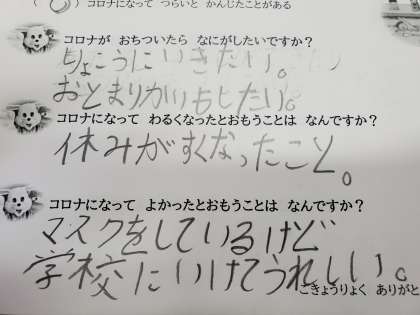 ( ◯ ) コロナになって つらいと かんじたことがある
コロナが おちついたら なにがしたいですか？
りょこうにいきたい。
おとまりかいもしたい。
コロナになって わるくなったとおもうことは なんですか？
休みがすくなったこと。
コロナになって よかったとおもうことは なんですか？
マスクをしているけど
学校にいけてうれしい。
ごきょうりょく ありがと